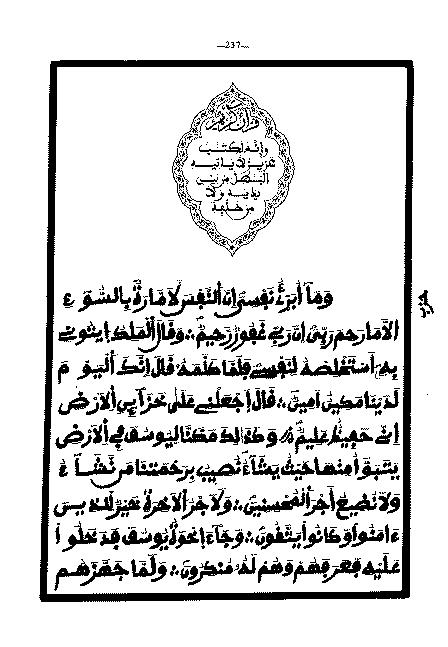 —237—
قرآن كريم
وإنه لكتب
عزيز لا ياتيه
البطل من بين
يديه ولا
من خلفه
وَمَآ أُبَرِّئُ نَفْسِىَ إِنَّ ألنَّفْسَ لَأَمَّارَةٌ بِالسُّوٓءِ
إِلَّا مَا رَحِمَ رَبِّىَ إِنَّ رَبِّى غَفُورٌ رَّحِيمٌ ∴ وَقَالَ ألْمَلِكُ إيتُونِى
بِهِۦٓ أَسْتَخْلِصْهُ لِنَفْسِى فَلَمَّا كَلَّمَهُۥ قَالَ إِنَّكَ ألْيَوْمَ
لَدَيْنَا مَكِينٌ أَمِينٌ ∴ قَالَ إَجْعَلْنِى عَلَىٰ خَزَآئِنِ ألْأَرْضِ
إِنِّى حَفِيظٌ عَلِيمٌ ∴ وَكَذَٰلِكَ مَكَّنَّا لِيُوسُفَ فِى ألْأَرْضِ
يَتَبَوَّأُ مِنْهَا حَيْثُ يَشَآءُ نُصِيبُ بِرَحْمَتِنَا مَن نَّشَآءُ
وَلَا نُضِيعُ أَجْرَ ألْمُحْسِنِينَ ∴ وَلَأَجْرُ ألْأَخِرَةِ خَيْرٌ لِّلَّذِينَ
ءَامَنُوا وَكَانُوا يَتَّقُونَ ∴ وَجَآءَ إِخْوَةُ يُوسُفَ فَدَخَلُوا
عَلَيْهِ فَعَرَفَهُمْ وَهُمْ لَهُۥ مُنكِرُونَ ∴ وَلَمَّا جَهَّزَهُم
حزب